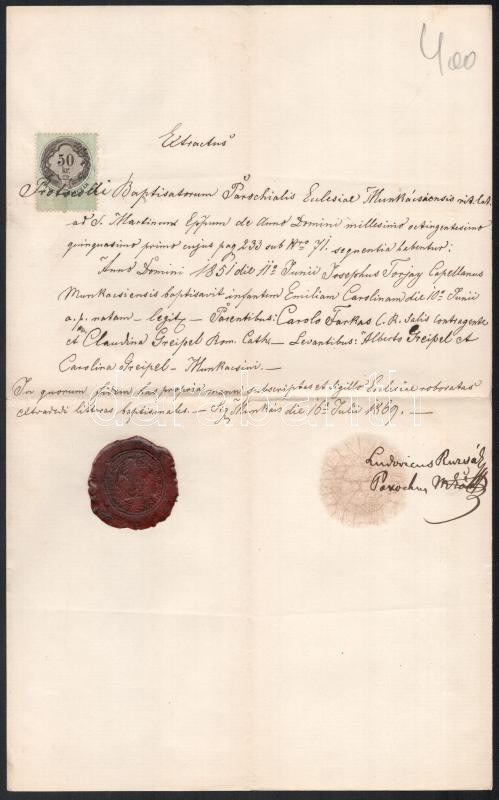 400
Extractus
50
kr.
Protocolli Baptisatorum Parochialis Eclesiae Munkácsiensis rit. lat.
ad S. Martinum Eppum de Anno Domini millesimo octingentesimo
quinquasimo primo cujus pag 233 sub Nro 71 sequentia habentur:
Anno Domini 1851 die 11a Junii Josephus Torjay Capellanus
Munkacsiensis baptisavit infantem Emiliam Carolinam die 10a Junii
a. p. natam - legit - Parentibus: Carolo Farkas C. R. Salis contragente
et Claudina Greipel Rom. Cath. - Levantibus: Alberto Greipel et
Carolina Greipel - Munkacsini. -
In quorum fidem has propria manu subscriptas et sigillo Eclesiae roboratas
extradedi litteras baptismales. - Sig Munkács die 16a Julii 1869. -
Ludovicus
Parochus
darabanth